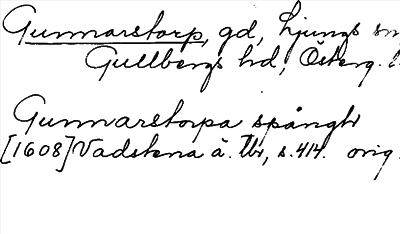 Gunnarstorp, gd, Ljungs sn
Gullbergs hd, Österg. l.
Gunnarstorpa spångh
[1608] Vadstena ä. Tbr, s. 414. orig.